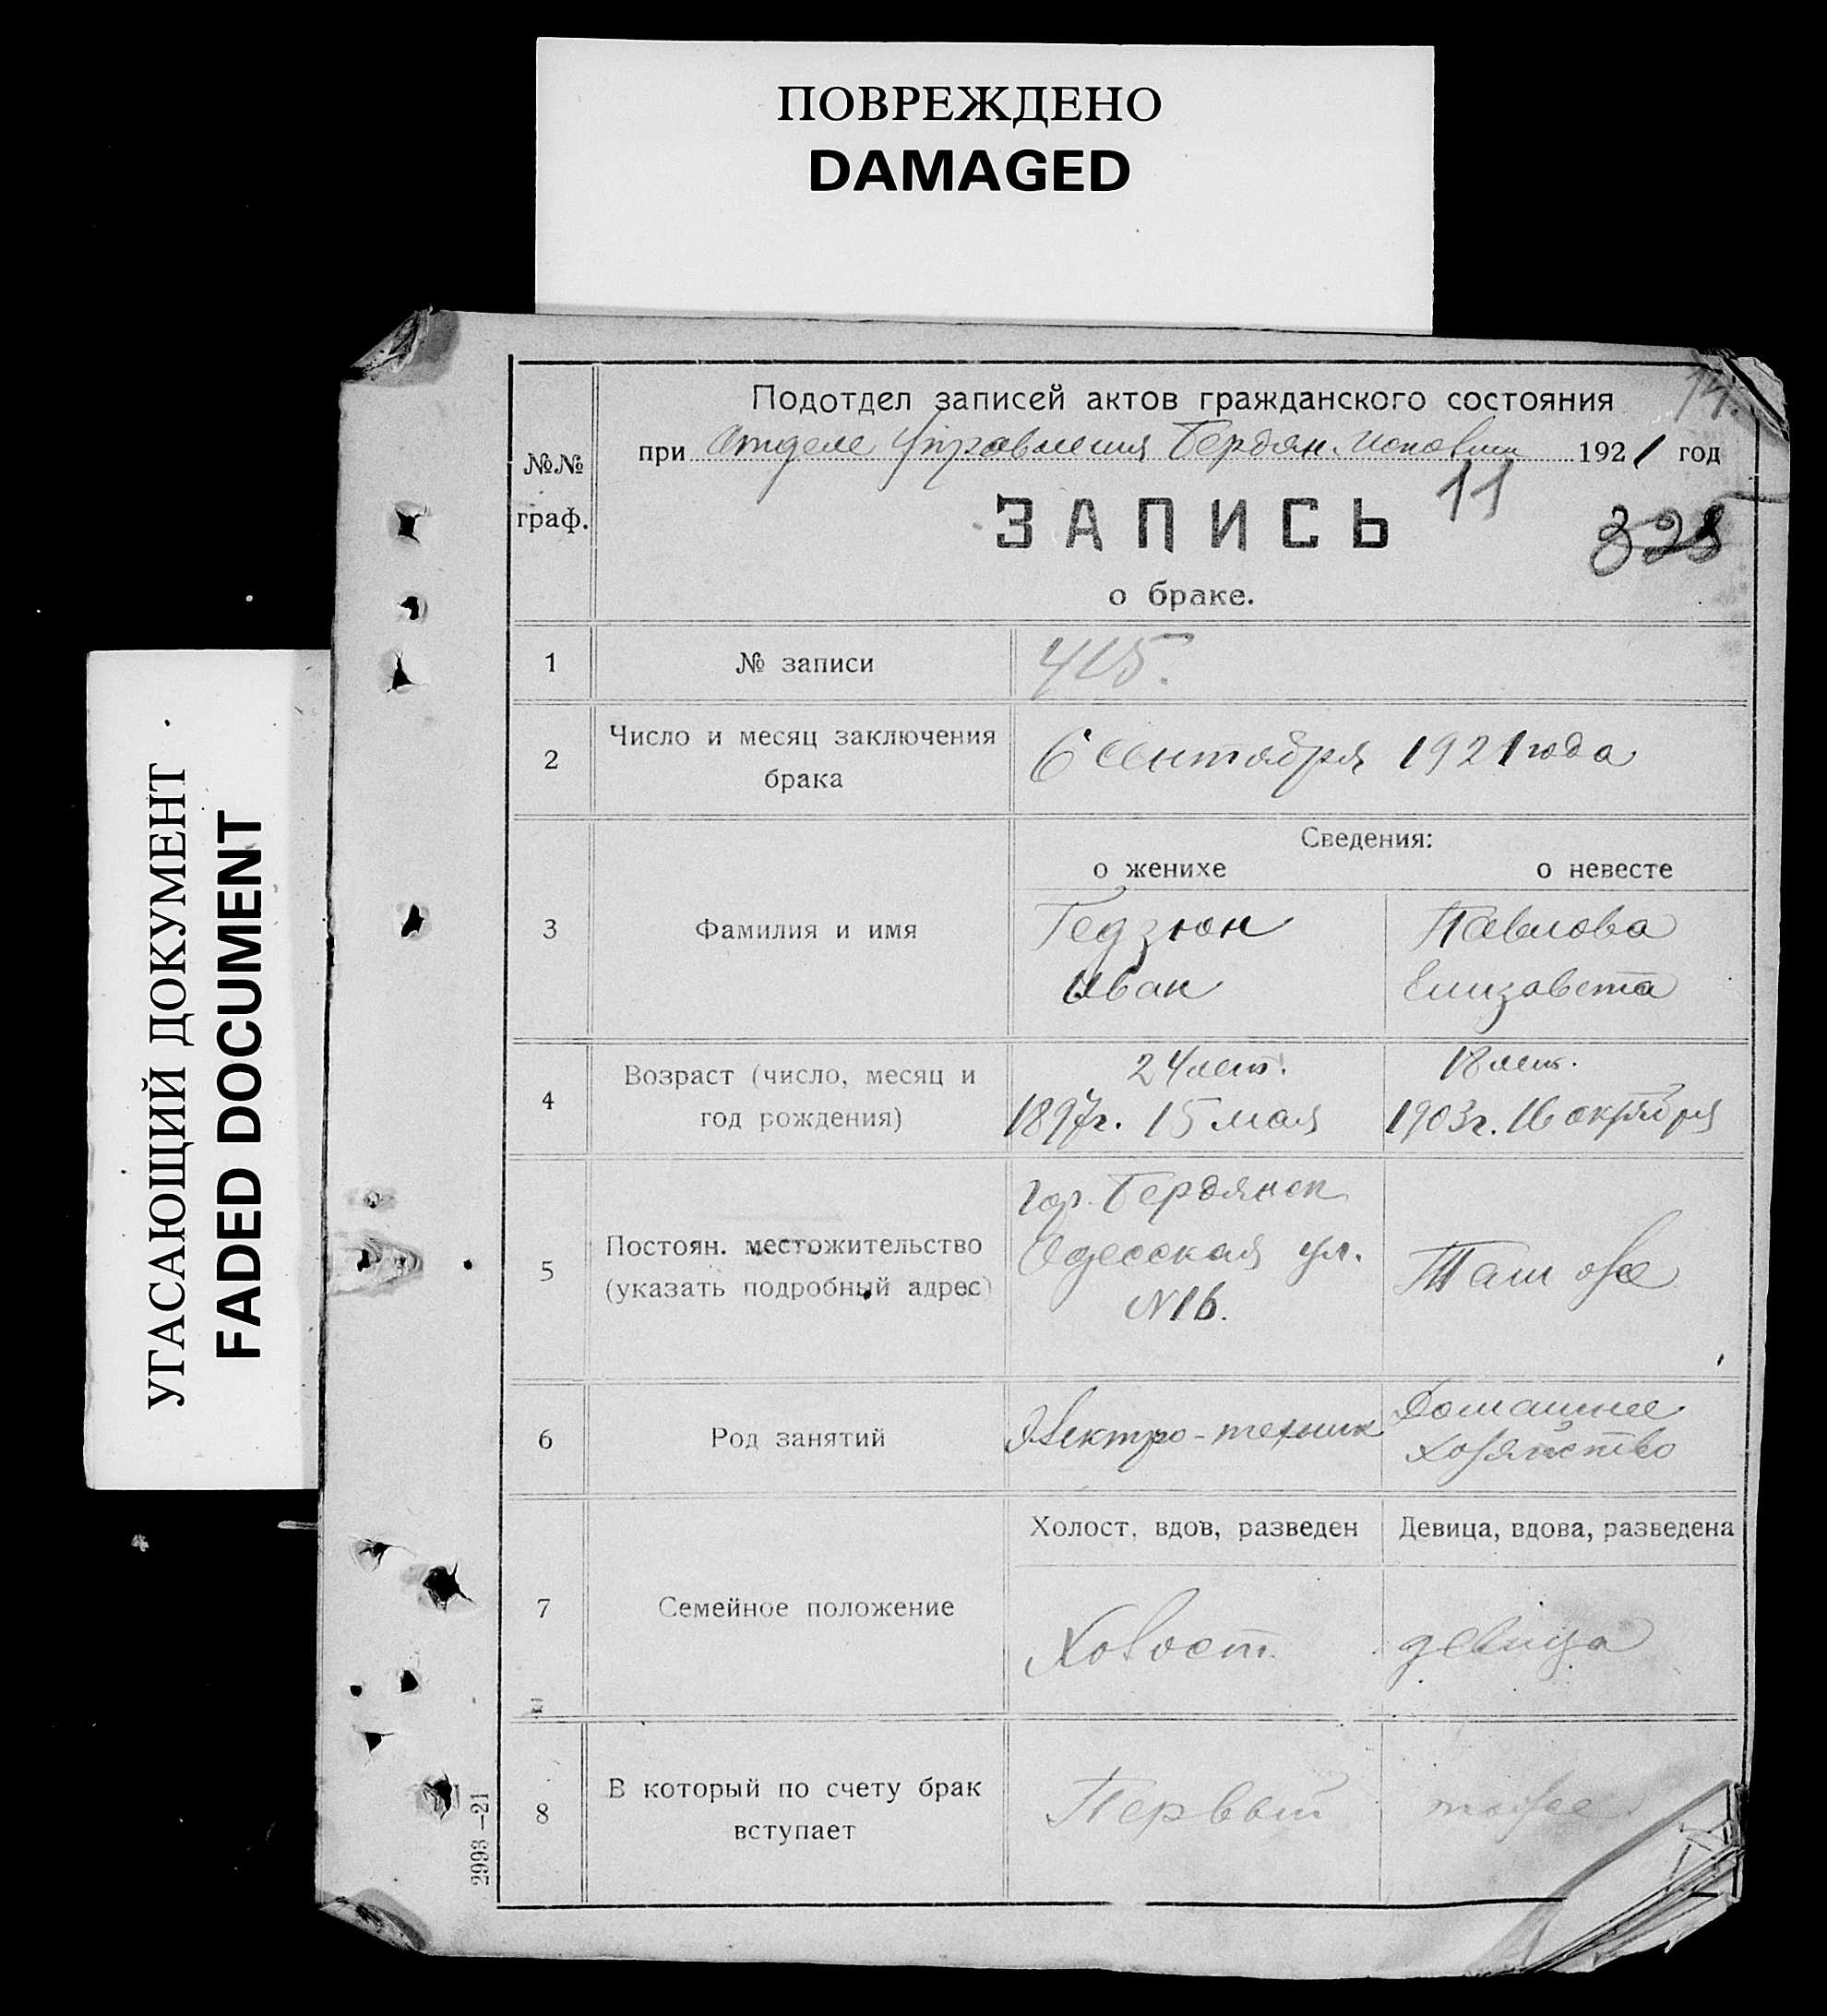 ПОВРЕЖДЕНО
DAMAGED
УГАСАЮЩИЙ ДОКУМЕНТ
FADED DOCUMENT
14.
Подотдел записей актов гражданского состояния
при Отделе Управления Бердян. Исполкома 1921 год
№№
граф.
11
ЗАПИСЬ
328
о браке.
1 № записи 415.
2 Число и месяц заключения
брака
6 Сентября 1921 года
Сведения:
о женихе о невесте
3 Фамилия и имя
Гедзюн Павлова
Иван Елизавета
4 Возраст (число, месяц и
год рождения)
24 лет. 18 лет.
1897г. 15 мая 1903г. 16 октября
5 Постоян. местожительство
(указать подробный адрес)
гор. Бердянск
Одесская ул.
№16.
Там же
6 Род занятий
Электро-техник
Домашнее
хозяйство
Холост, вдов, разведен Девица, вдова, разведена
7 Семейное положение
Холост. девица
8 В который по счету брак
вступает
Первый тоже
2993—21